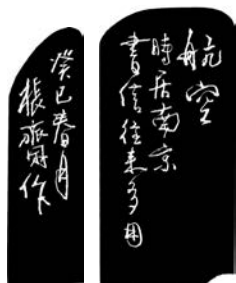 航空
時居南京
書信往来多用
癸巳春月
張 作